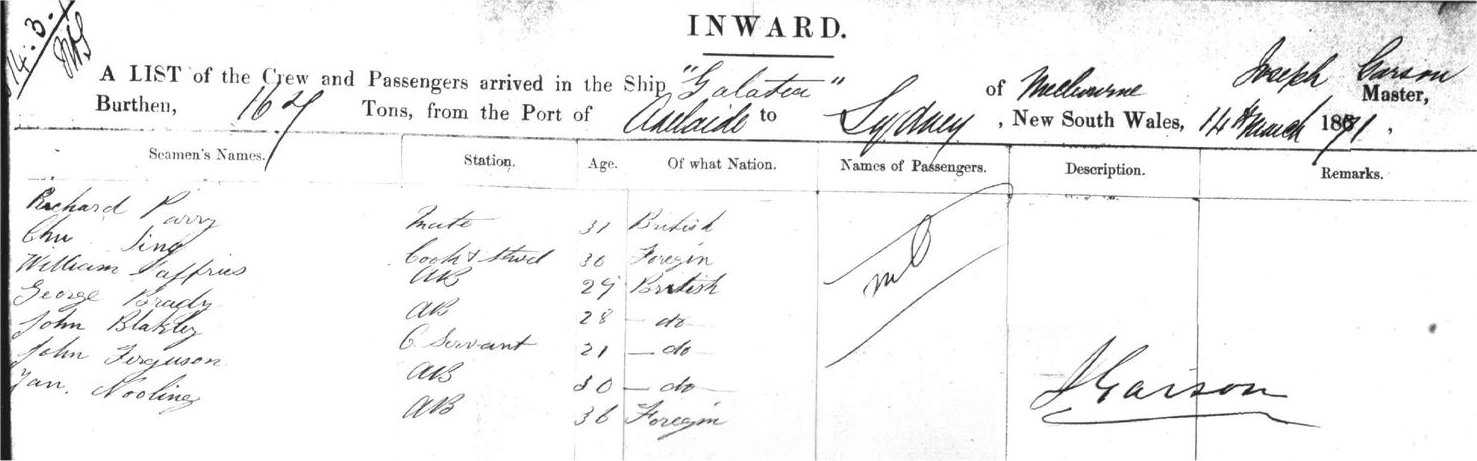 14.3.
INWARD.
A LIST of the Crew and Passengers arrived in the Ship "Galatea" of Melbourne Joseph Garson Master,
Burthen, 167 Tons, from the Port of Adelaide to Sydney, New South Wales, 14th March 1871,
Seamen's Names. Station. Age. Of what Nation. Names of Passengers. Description. Remarks.
Richard Parry Mate 31 British
Chu Sing Cook & Stwd 30 Foregin
William Jaffries AB 29 British
George Brady AB 28 -do-
John Blakley O. Servant 21 -do-
John Ferguson AB 30 -do-
Jan. AB 36 Foregin
J Garson